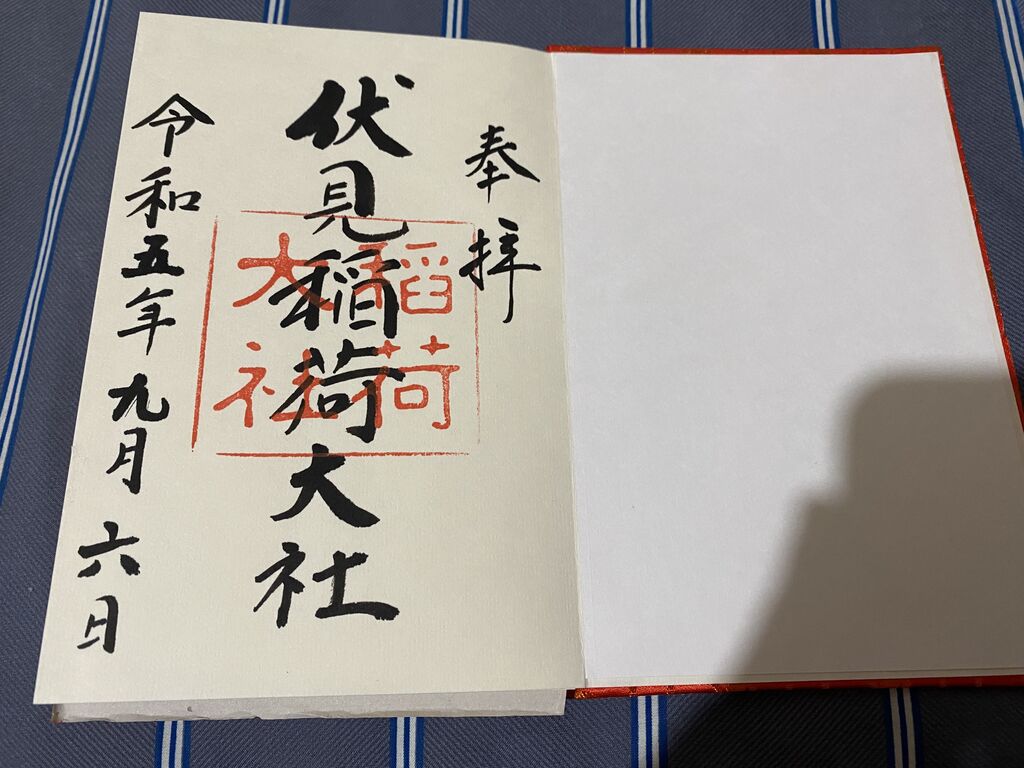 奉拝
伏見稲荷大社
稲荷
大社
令和五年九月六日